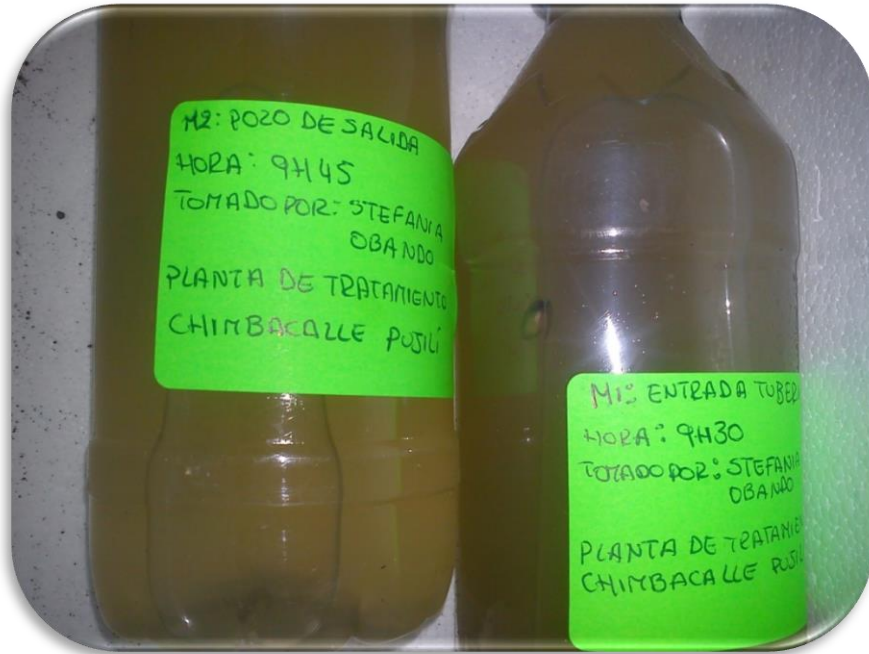 M2: POZO DE SALIDA
HORA: 9H45
TOMADO POR: STEFANIA
OBANDO
PLANTA DE TRATAMIENTO
CHIMBACALLE PUJILÍ
M1: ENTRADA
HORA: 9H30
TOMADO POR: STEFANIA
OBANDO
PLANTA DE
CHIMBACALLE